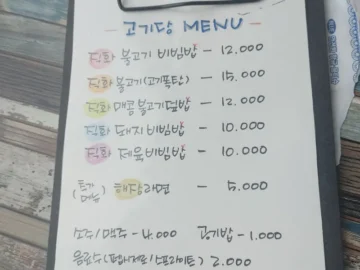 - 고기당 MENU -
직화 불고기 비빔밥 - 12.000
직화 불고기(고기폭탄) - 15.000
직화 매콤불고기덮밥 - 12.000
직화 돼지비빔밥 - 10.000
직화 제육비빔밥 - 10.000
(특기메뉴) 해장라면 - 5.000
소주/맥주 - 4.000 공기밥 - 1.000
음료수(펩시제로/스프라이트) 2.000